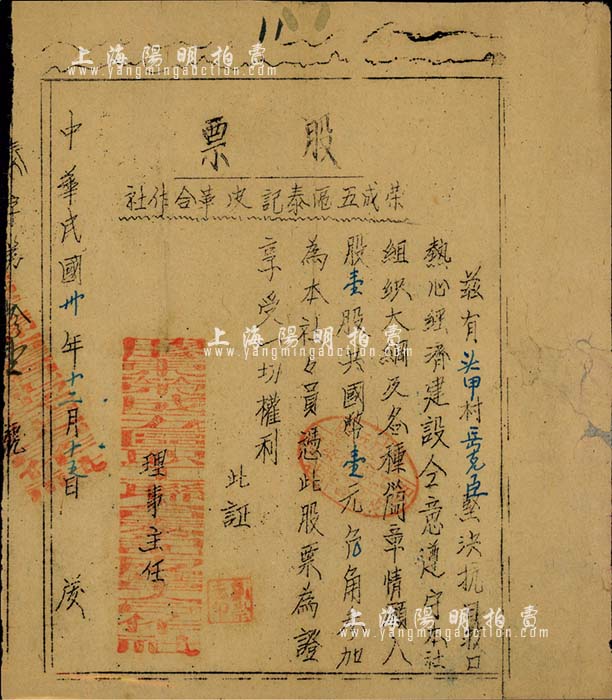 上海陽明拍賣
www.yangmingauction.com
股票
荣成五區泰記皮革合作社
茲有头甲村岳克臣堅決抗日敌
熱心經濟建設全意遵守本社
組织大綱及各種簡章情願入
股壹股共國幣壹元〇角參加
為本社々員憑此股票為證
享受一切權利
此証
理事主任
中華民國卅年十二月十五日
上海陽明拍賣
www.yangmingauction.com
上海陽明拍賣
www.yangmingauction.com